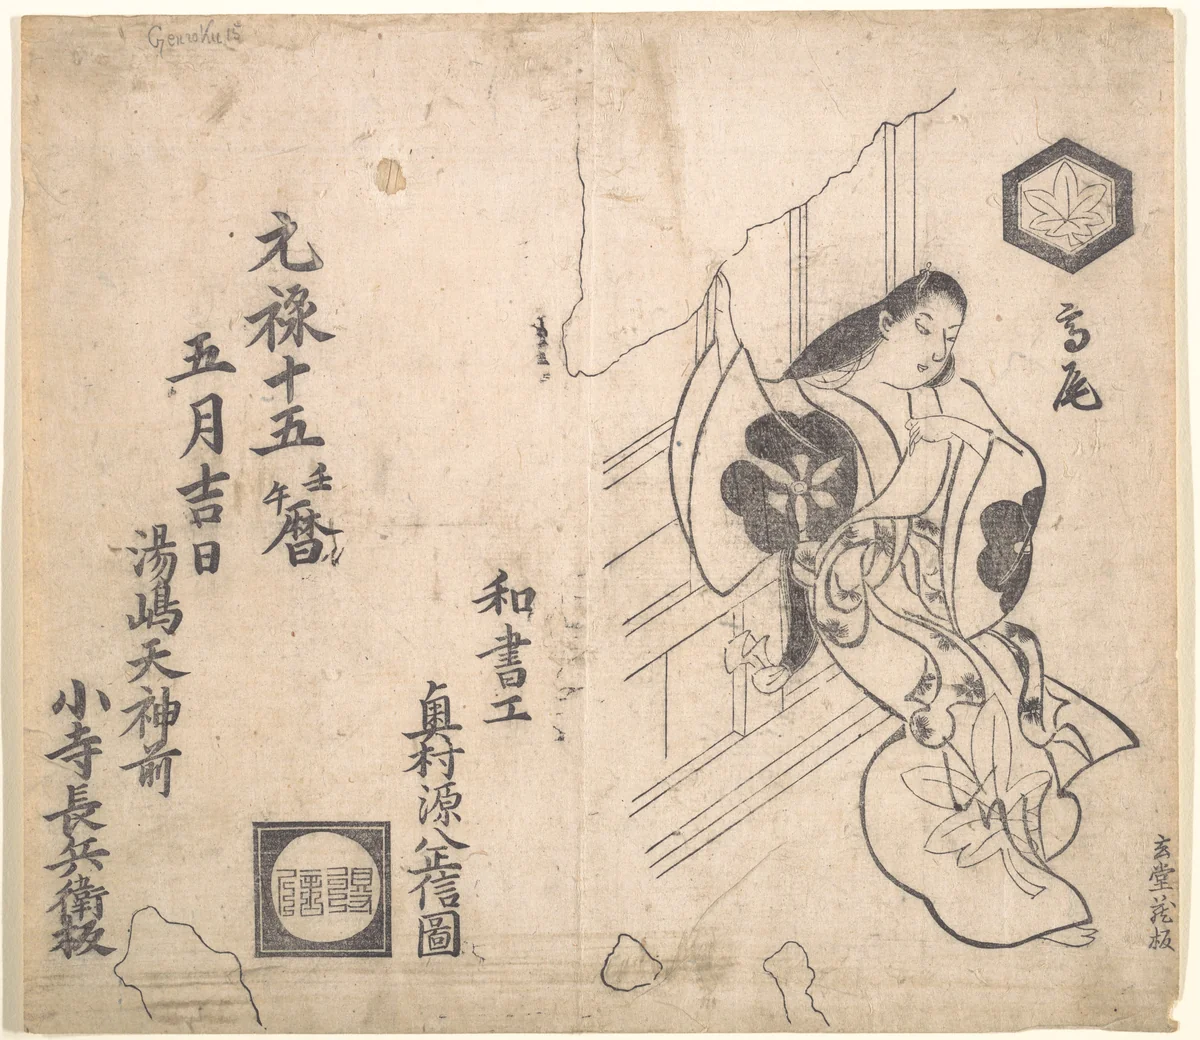 Genroku 15
高尾
玄堂蔵板
和畫工
奥村源八正信圖
元禄十五壬午暦
五月吉日
湯嶋天神前
小寺長兵衛板